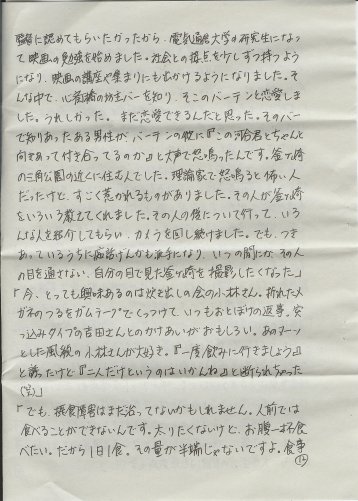 に認めてもらいたかったから、電気通信大学の研究生になっ
て映画の勉強を始めました。社会との接点を少しずつ持つよう
になり、映画の講座や集まりにも出かけるようになりました。そ
んな中で、心斎橋の坊主バーを知り、そこのバーテンと恋愛しま
した。うれしかった。まだ恋愛できるんだと思った。そのバー
で知りあったある男性が、バーテンの彼に『この河合君とちゃんと
向きあって付き合ってるのか』と大声で怒鳴ったんです。釜ヶ崎
の三角公園の近くに住む人でした。理論家で怒鳴ると怖い人
だったけど、すごく惹かれるものがありました。その人が釜ヶ崎
をいろいろ教えてくれました。その人の後について行って、いろ
んな人を紹介してもらい、カメラを回し続けました。でも、つき
あっているうちに けんかも派手になり、いつの間にか、その人
の目を通さない、自分の目で見た釜ヶ崎を撮影したくなった。」
「今、とっても興味あるのは炊き出しの会の小林さん。折れたメ
ガネのつるをガムテープでくっつけて、いつもおとぼけの返事。突
っ込みタイプの吉田さんとのかけあいがおもしろい。あのヌーッ
とした風貌の小林さんが大好き。『一度飲みに行きましょう』
と誘ったけど『二人だけというのはいかんね』と断られちゃった
(笑)」
「でも、摂食障害はまだ治ってないかもしれません。人前では
食べることができないんです。太りたくないけど、お腹一杯食
べたい。だから1日1食。その量が半端じゃないですよ。食事